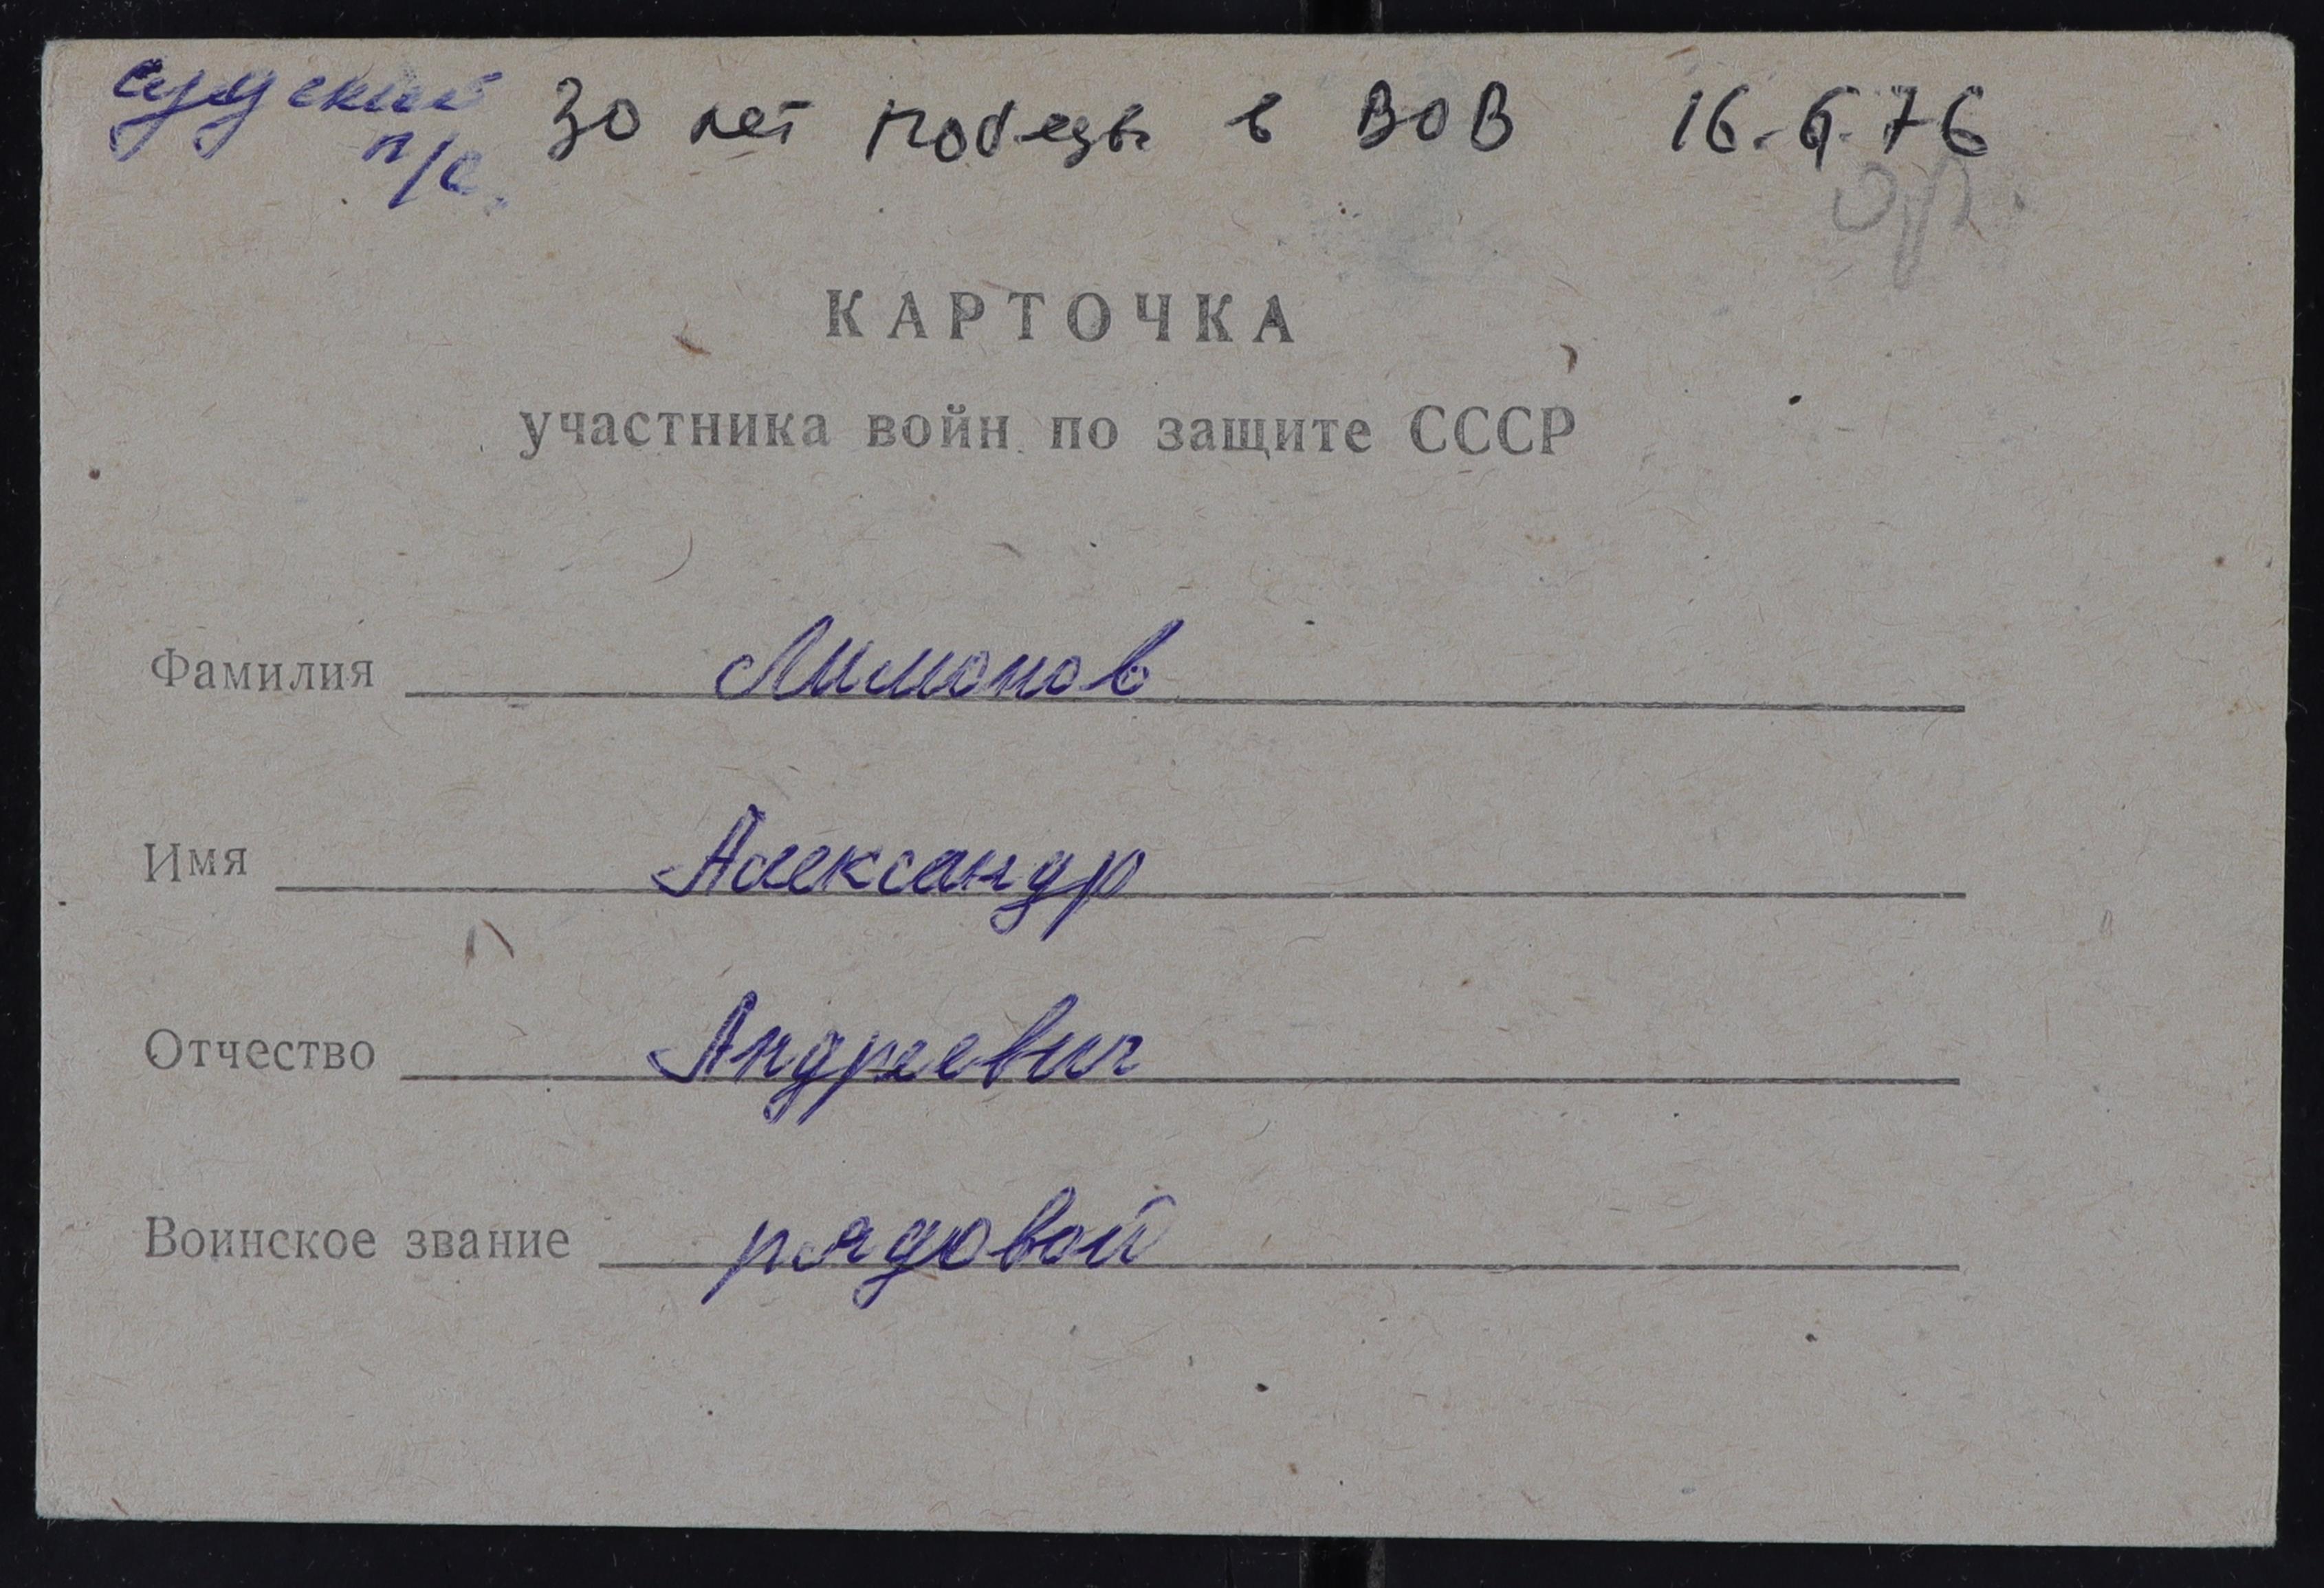 Судский 30 лет Победы в ВОВ 16.6.76
п/с.
КАРТОЧКА
участника войн по защите СССР
Фамилия Лимонов
Имя Александр
Отчество Андреевич
Воинское звание рядовой